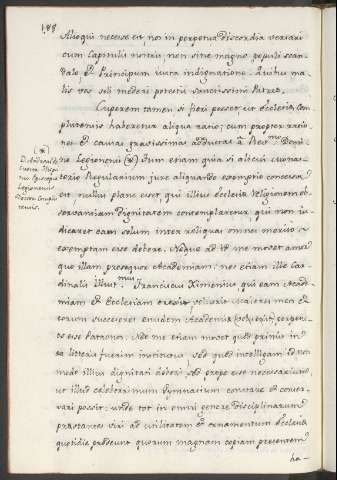 188
Alioqui necesse est, nos in perpetua discordia versari
cum Capituli nostri, non sine magno populi scan-
dalo, et Principum iusta indignatione. Quibus ma-
lis vos soli mederi potestis sanctissimi Patres.
Cuperem tamen si fieri posset ut Ecclesia Com-
plutensis haberetur aliqua ratio; cum propter ratio-
nes et causas gravissimas adductas a Revmo Domi-
no Legionensi (*) dum etiam quia si alicui
Regularium jure aliquando exemptio concessa
est, nullus plane esset qui illius Ecclesia Religionem ob-
servantiam dignitatem contemplaretur, qui non iu-
dicaret eam solum inter reliquas omnes merito
exemptam esse debere. Neque ad id me movet amor
quo illam prosequor Academiam; nec etiam ille Car-
dinalis Illustmus Franciscus Ximenius, qui eam Acade-
miam et Ecclesiam erexit,
eorum successores eiusdem Academia
esse Patronos. Nec me etiam movet quod primis in
ea litteris fuerim institutus, sed quod intelligam id non
modo illius dignitati deberi sed prope esse necessarium,
ut illud celeberrimum Gymnasium constare et conser-
vari possit: unde tot in omni genere disciplinarum
prastantes viri ad utilitatem et ornamentum Ecclesia
quotidie prodeunt quorum magnam copiam presentem
ha-
(*)
D. Andreas de
Cuesta
Episcopus
Legionensis
Doctor Complu-
tensis.